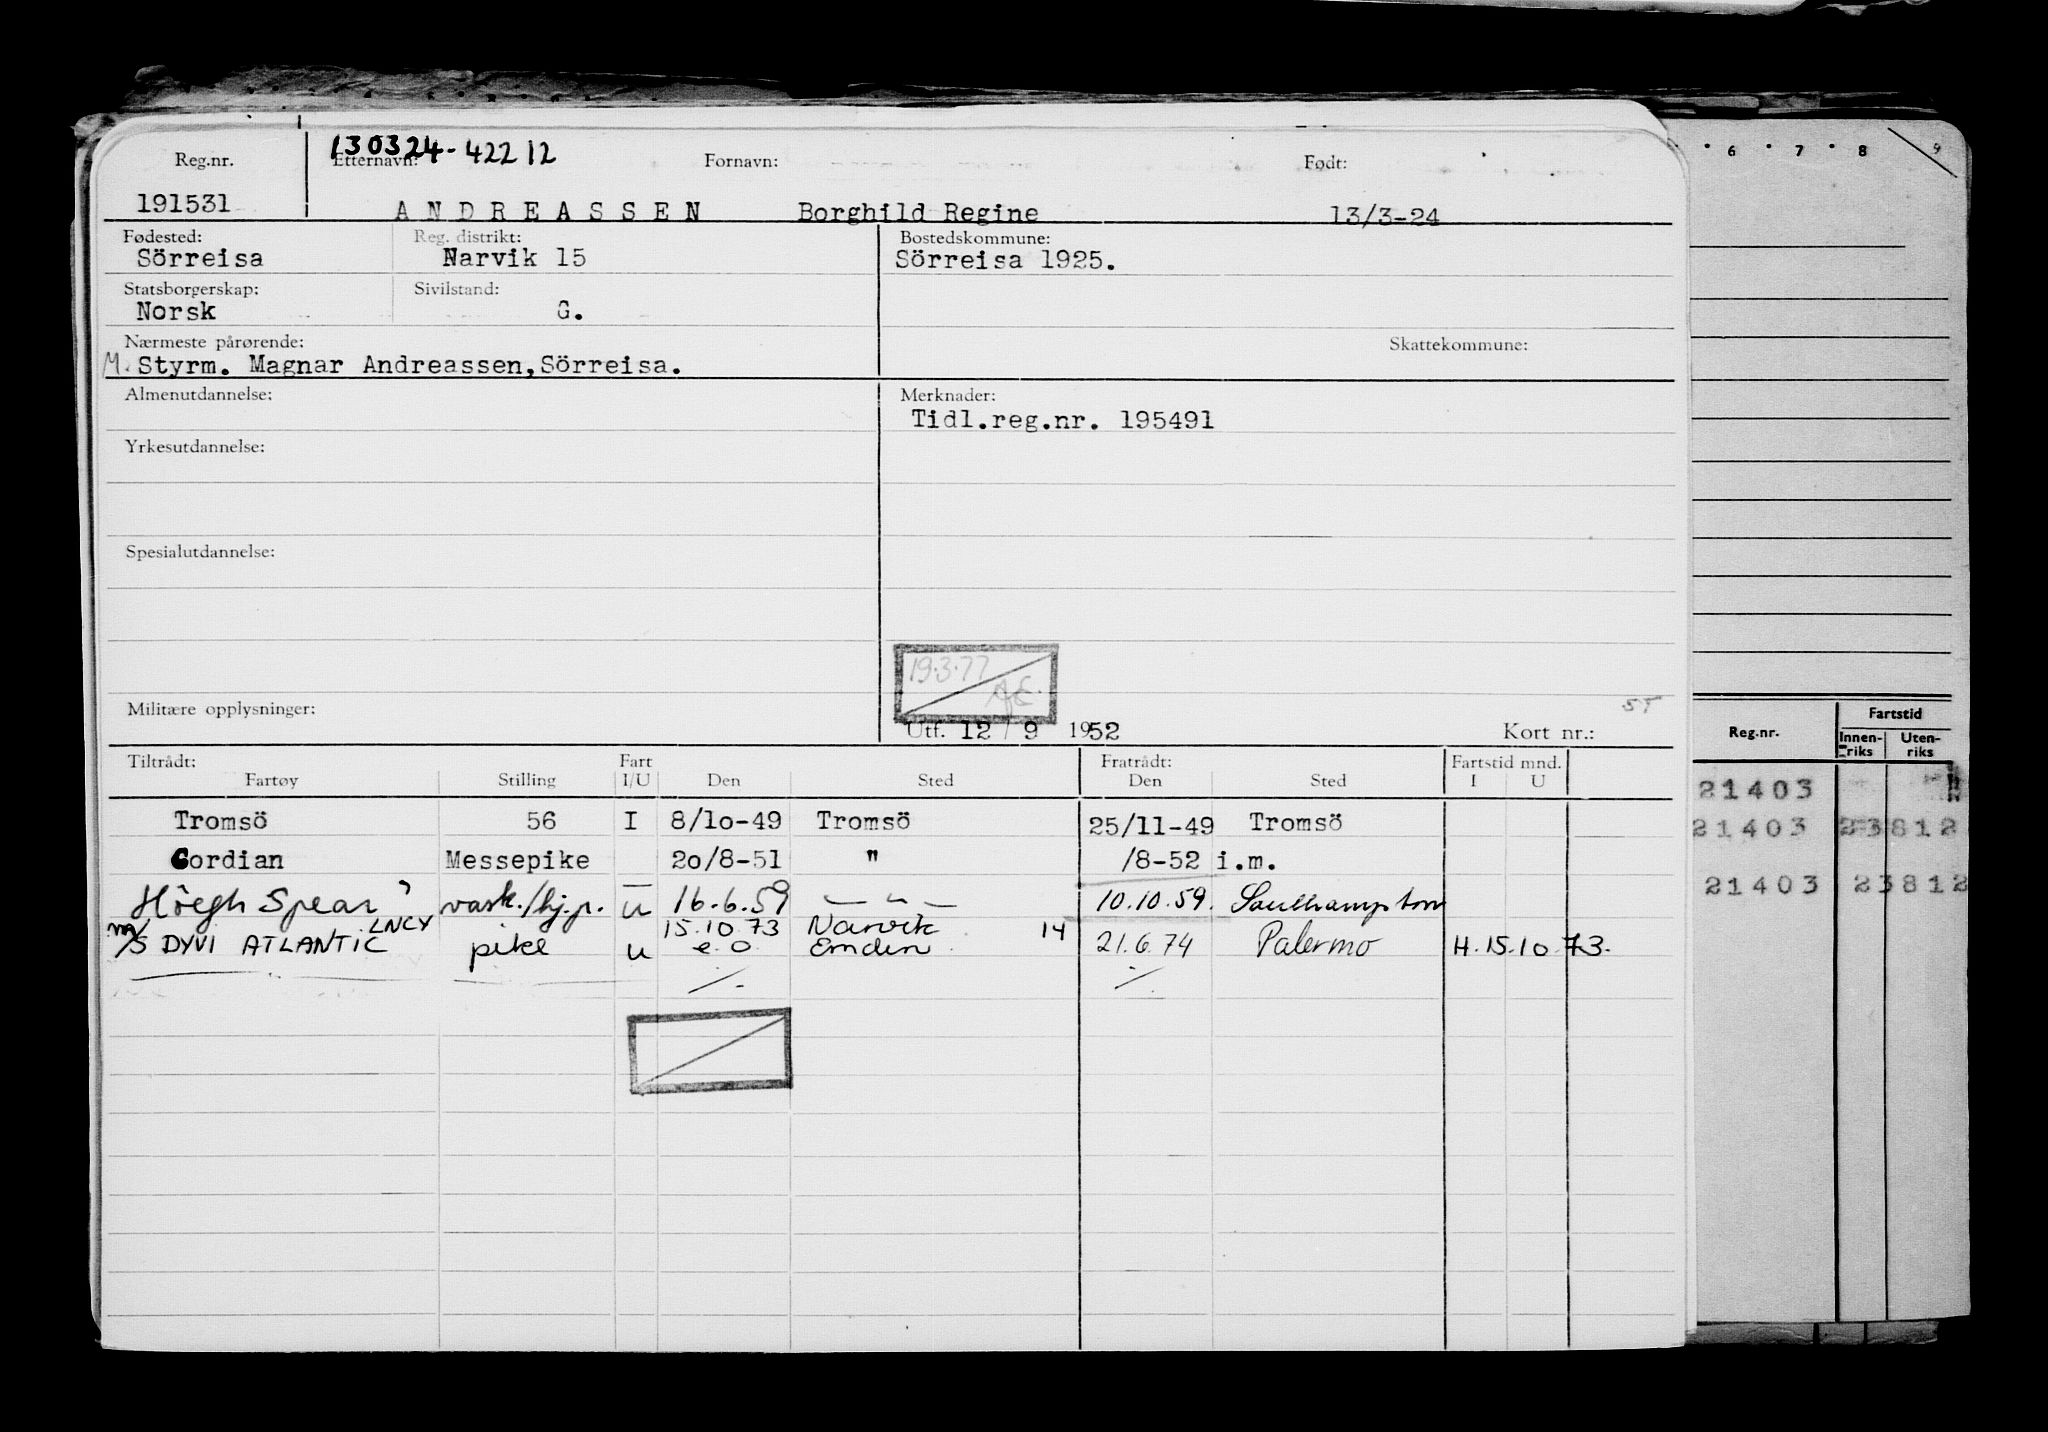 130324-42212
Reg.nr. Etternavn: Fornavn: Født:
191531 ANDREASSEN Borghild Regine 13/3-24
Fødested: Reg. distrikt: Bostedskommune:
Sörreisa Narvik 15 Sörreisa 1925.
Statsborgerskap: Sivilstand:
Norsk G.
Nærmeste pårørende: Skattekommune:
M. Styrm. Magnar Andreassen, Sörreisa.
Almenutdannelse: Merknader:
Tidl.reg.nr. 195491
Yrkesutdannelse:
Spesialutdannelse:
19.3.77
Militære opplysninger: ST
Utf. 12 / 9 1952 Kort nr.:
Tiltrådt: Fart Fratrådt: Fartstid mnd.
Fartøy Stilling I/U Den Sted Den Sted I U
Tromsö 56 I 8/10-49 Tromsö 25/11-49 Tromsö
Cordian Messepike 20/8-51 " /8-52 i.m.
Höegh Spear vask./hj.p. u 16.6.59 — " — 10.10.59. Southampton
LNCY 15.10 73 Narvik
m/s DYVI ATLANTIC pike u e.o. Emden 14 21.6.74 Palermo H.15.10.73.
6 7 8 9
Reg.nr. Fartstid
Innenriks Utenriks
21403
21403 23812
21403 23812